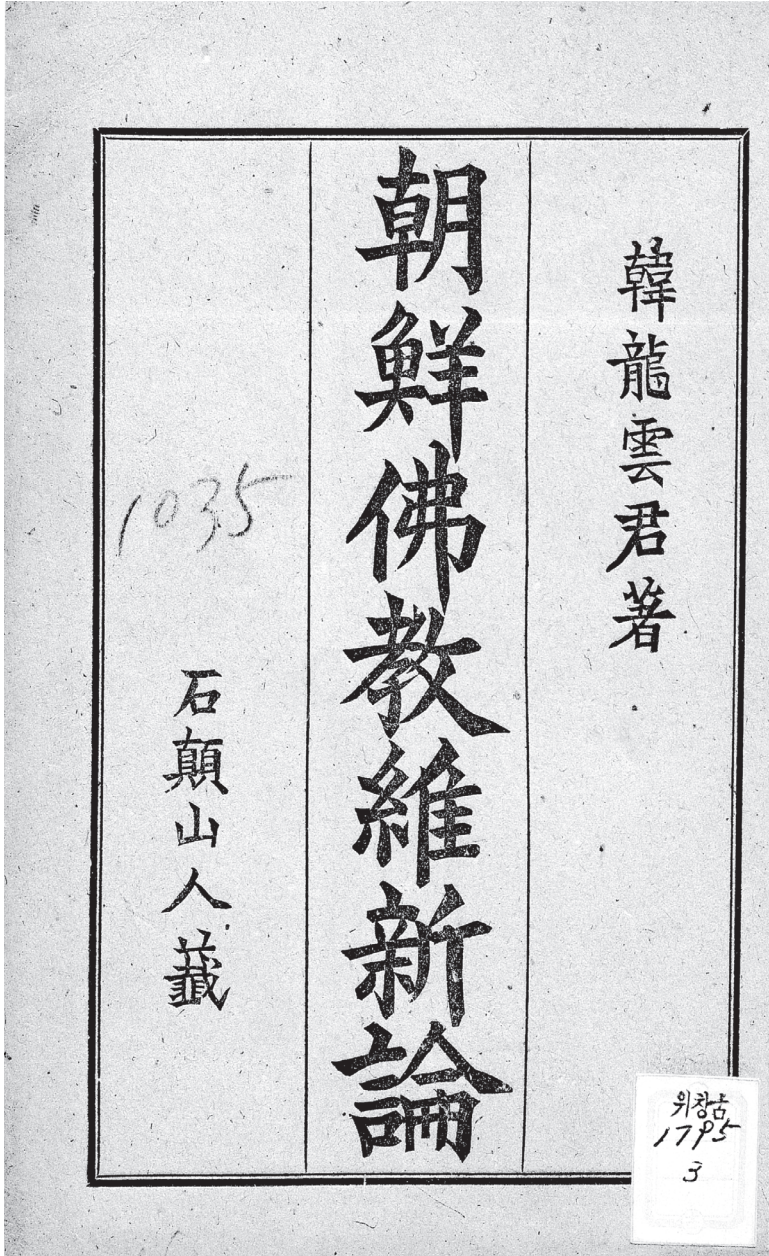 韓龍雲君著
朝鮮佛教維新論
石顚山人籤
1035
위창古
1795
3